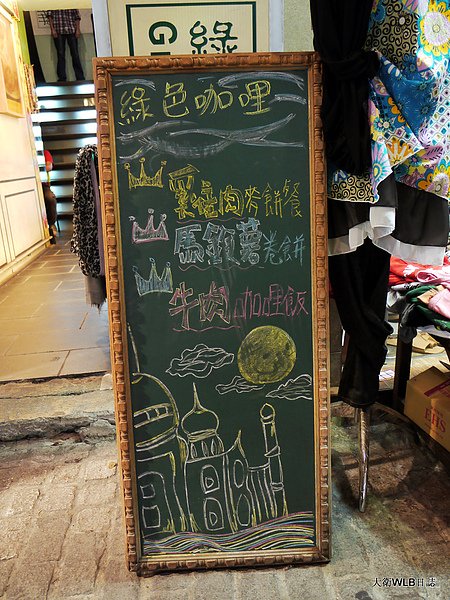 綠
綠色咖哩
肉麥餅餐
馬鈴薯卷餅
牛肉咖哩飯
大衛WLB日誌